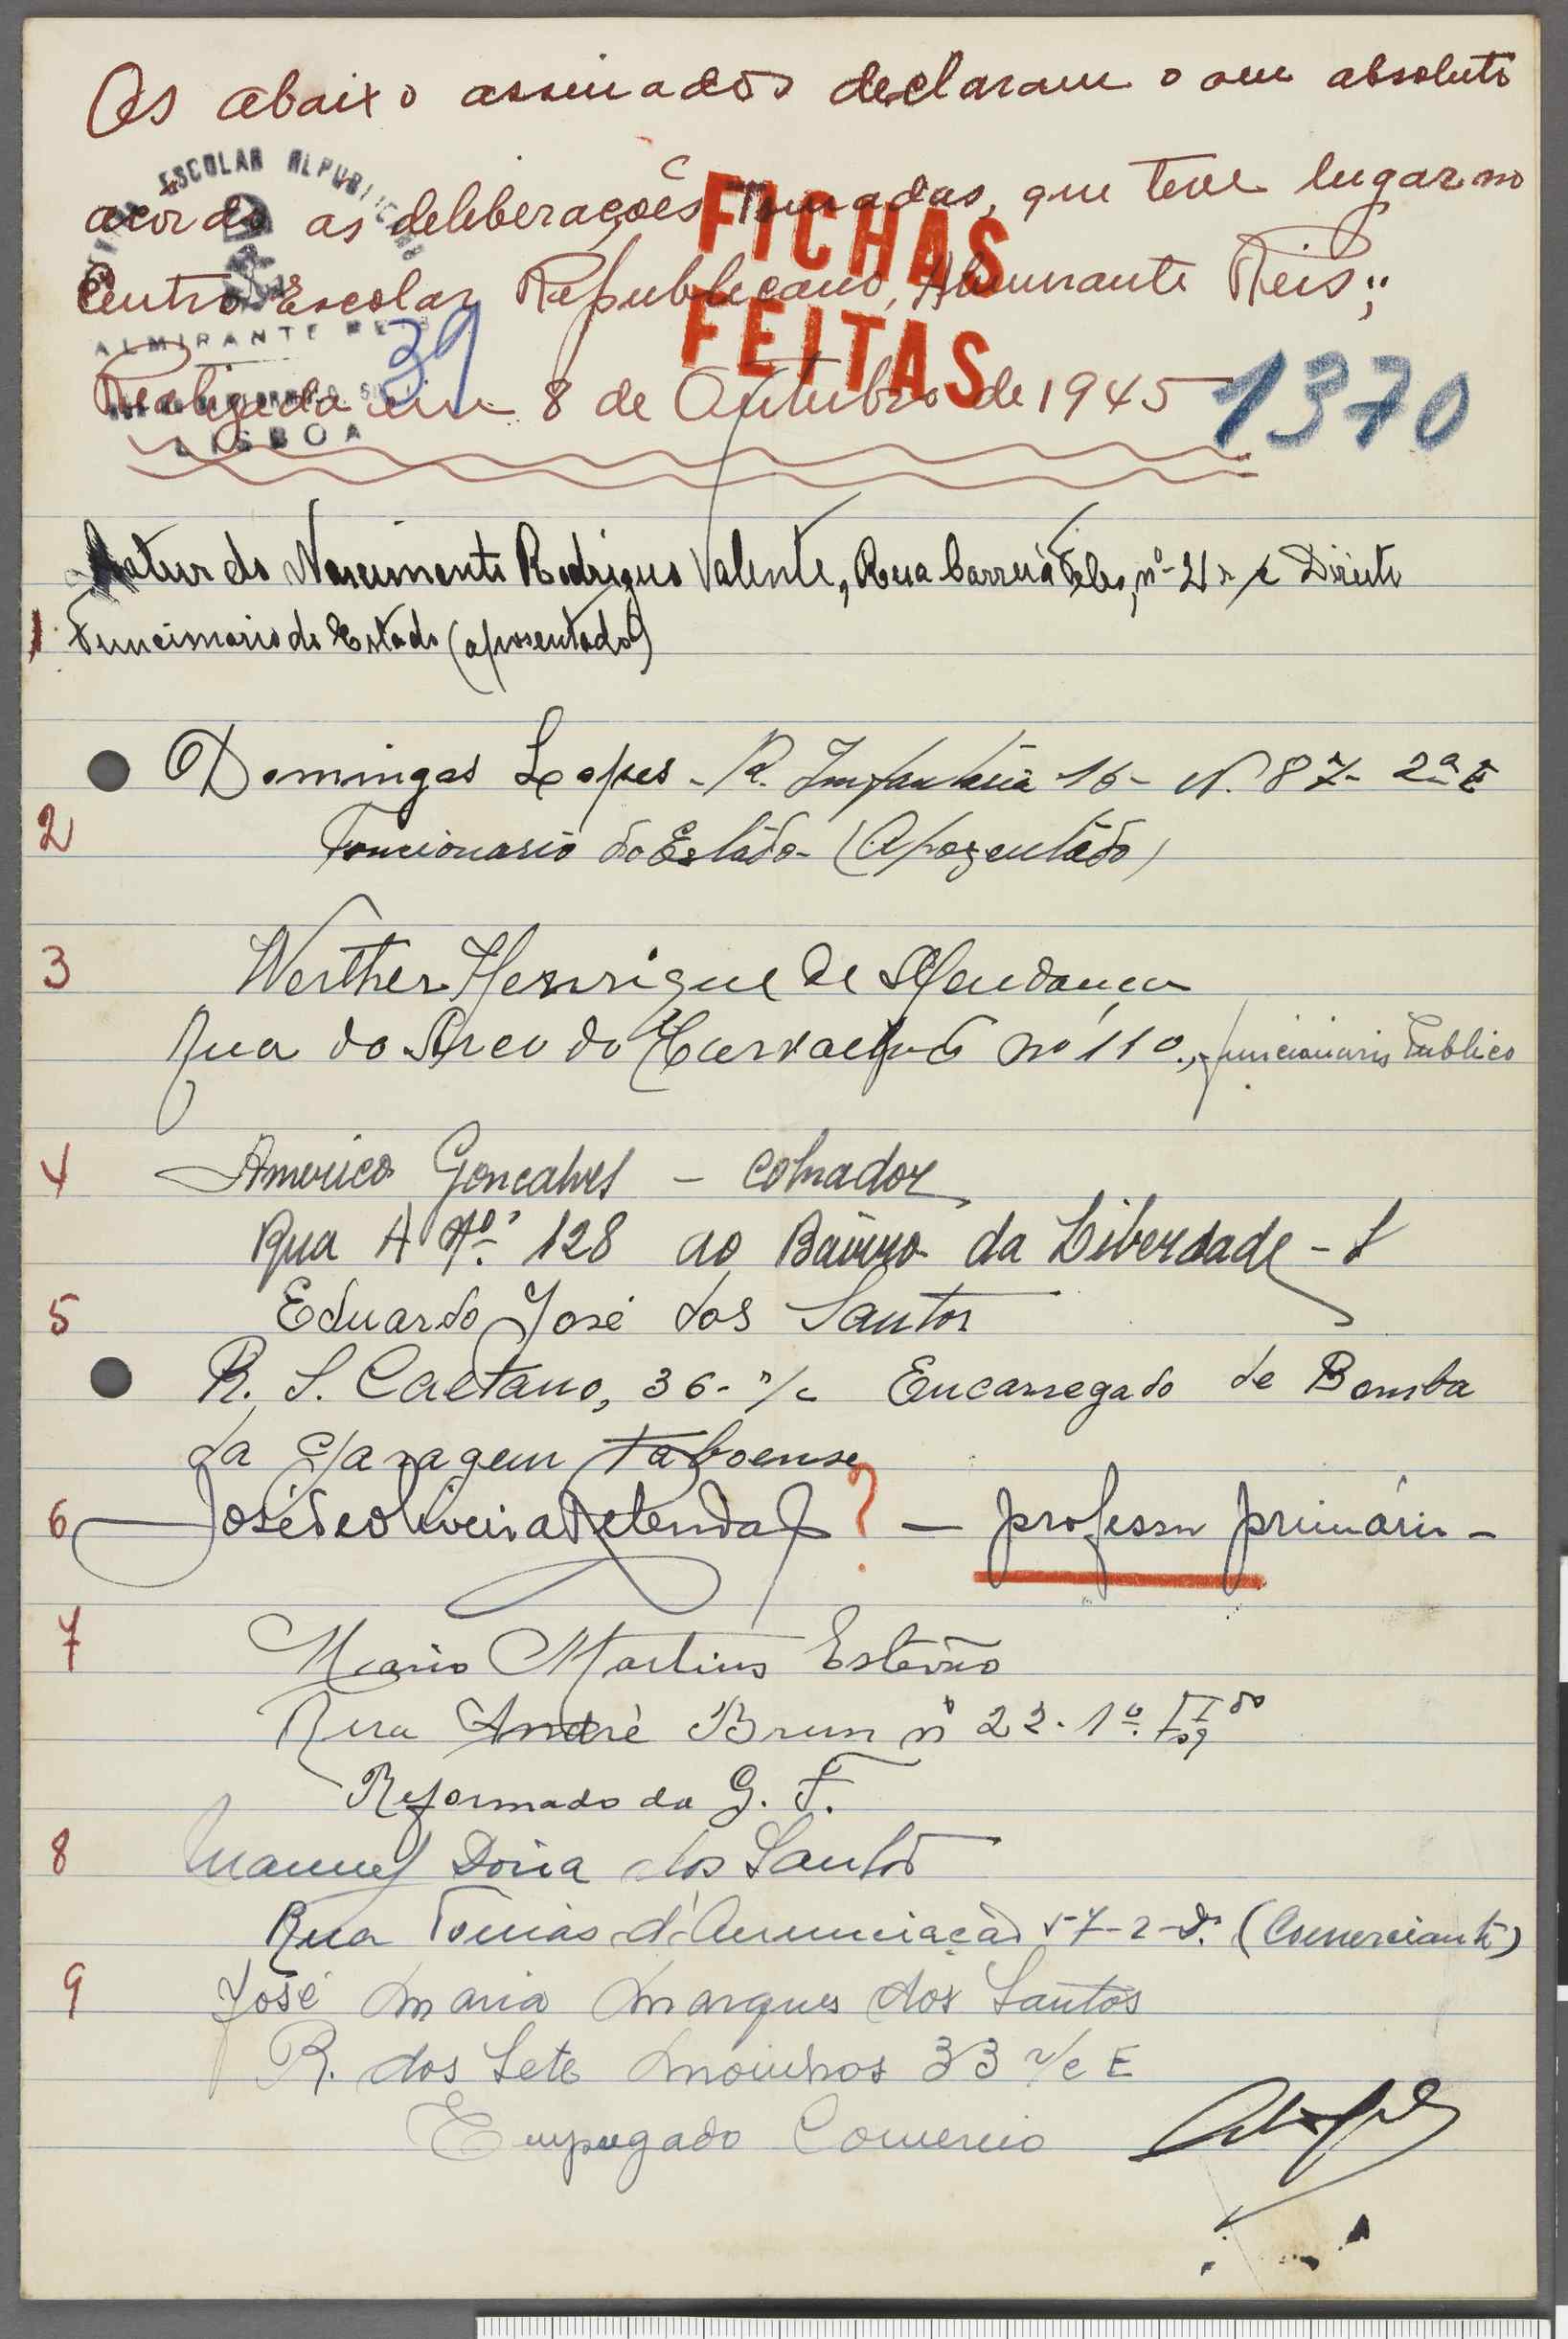 Os abaixo assinados declaram o seu absoluto
acordo as deliberações tomadas, que teve lugar no
Centro Escolar Republicano, Almirante Reis;;
Realizada em 8 de Outubro de 1945
ESCOLAR REPUBLICANO
ALMIRANTE REIS
LISBOA
39
FICHAS
FEITAS
1370
Artur do Nascimento Rodrigues Valente, Rua Correia Teles, nº 21 r/c Direito
1 Funcionario do Estado (aposentado)
Domingos Lopes - R. Infantaria 16 - N. 87 - 2º E
2 Funcionario do Estado - (Apozentado)
3 Werther Henrique de Mendonça
Rua do Arco do Carvalhão nº 110., funcionario Publico
4 Americo Goncalves - cobrador
Rua A Nº. 128 ao Bairro da Liberdade - L
5 Eduardo José dos Santos
R. S. Caetano, 36 - r/c Encarregado de Bomba
da Garagem Taboense
6 José de Oliveira ? - professor primário -
7 Mario Martins Estevão
Rua André Brun nº 22. 1º. Esqdo
Reformado da G. F.
8 Manuel Doria dos Santos
Rua Tomás d'Anunciação 57-2-D. (Comerciante)
9 José Maria Marques dos Santos
R. dos Sete Moinhos 33 r/c E
Empregado Comercio